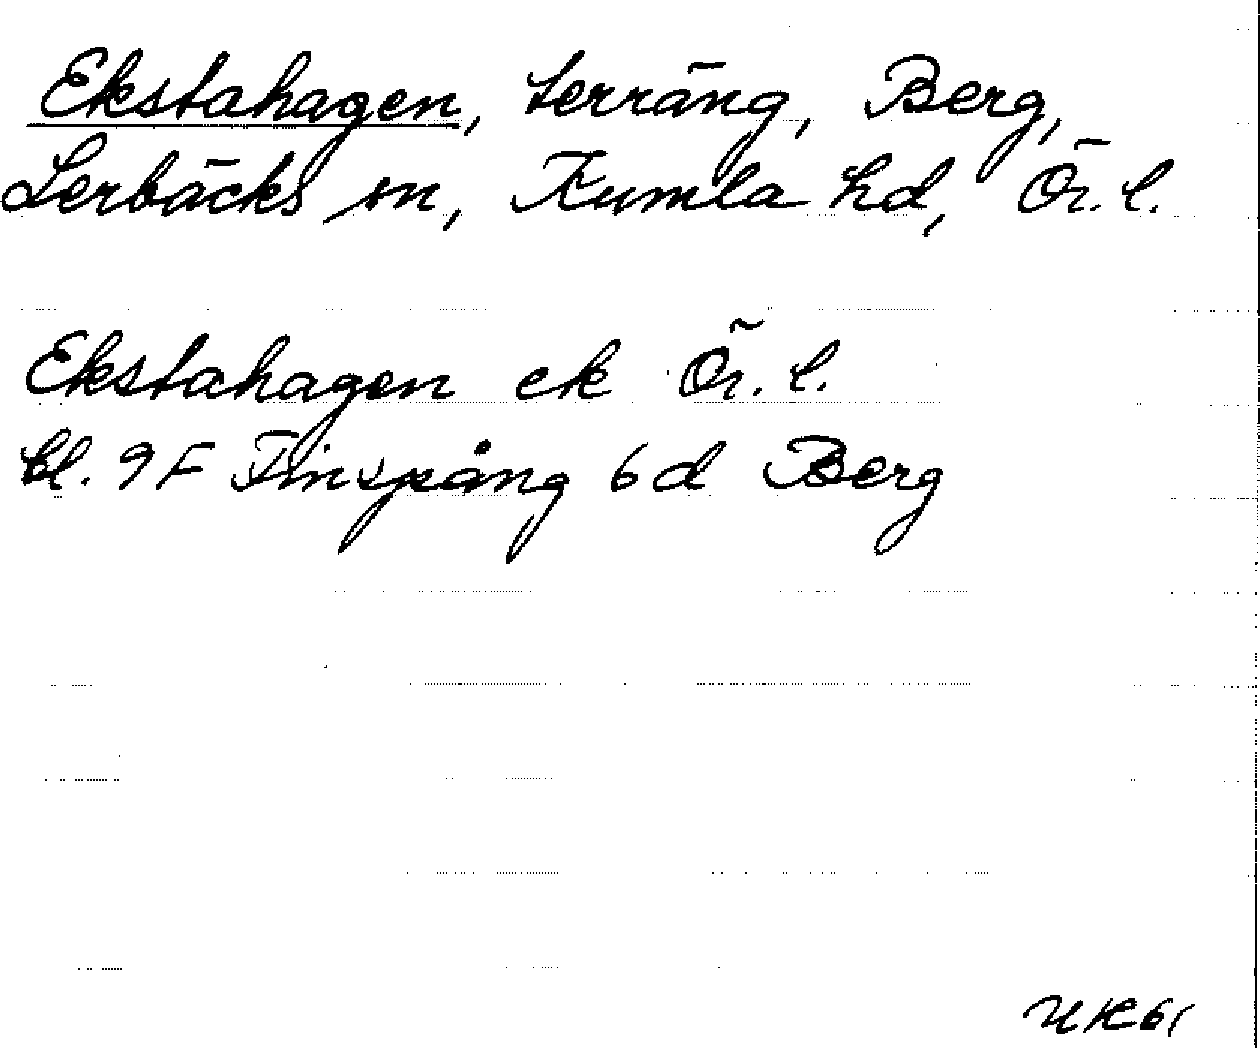 Ekstahagen, terräng, Berg,
Lerbäcks sn, Kumla hd, Ör. l.
Ekstahagen ek Ör. l.
bl. 9F Finspång 6d Berg